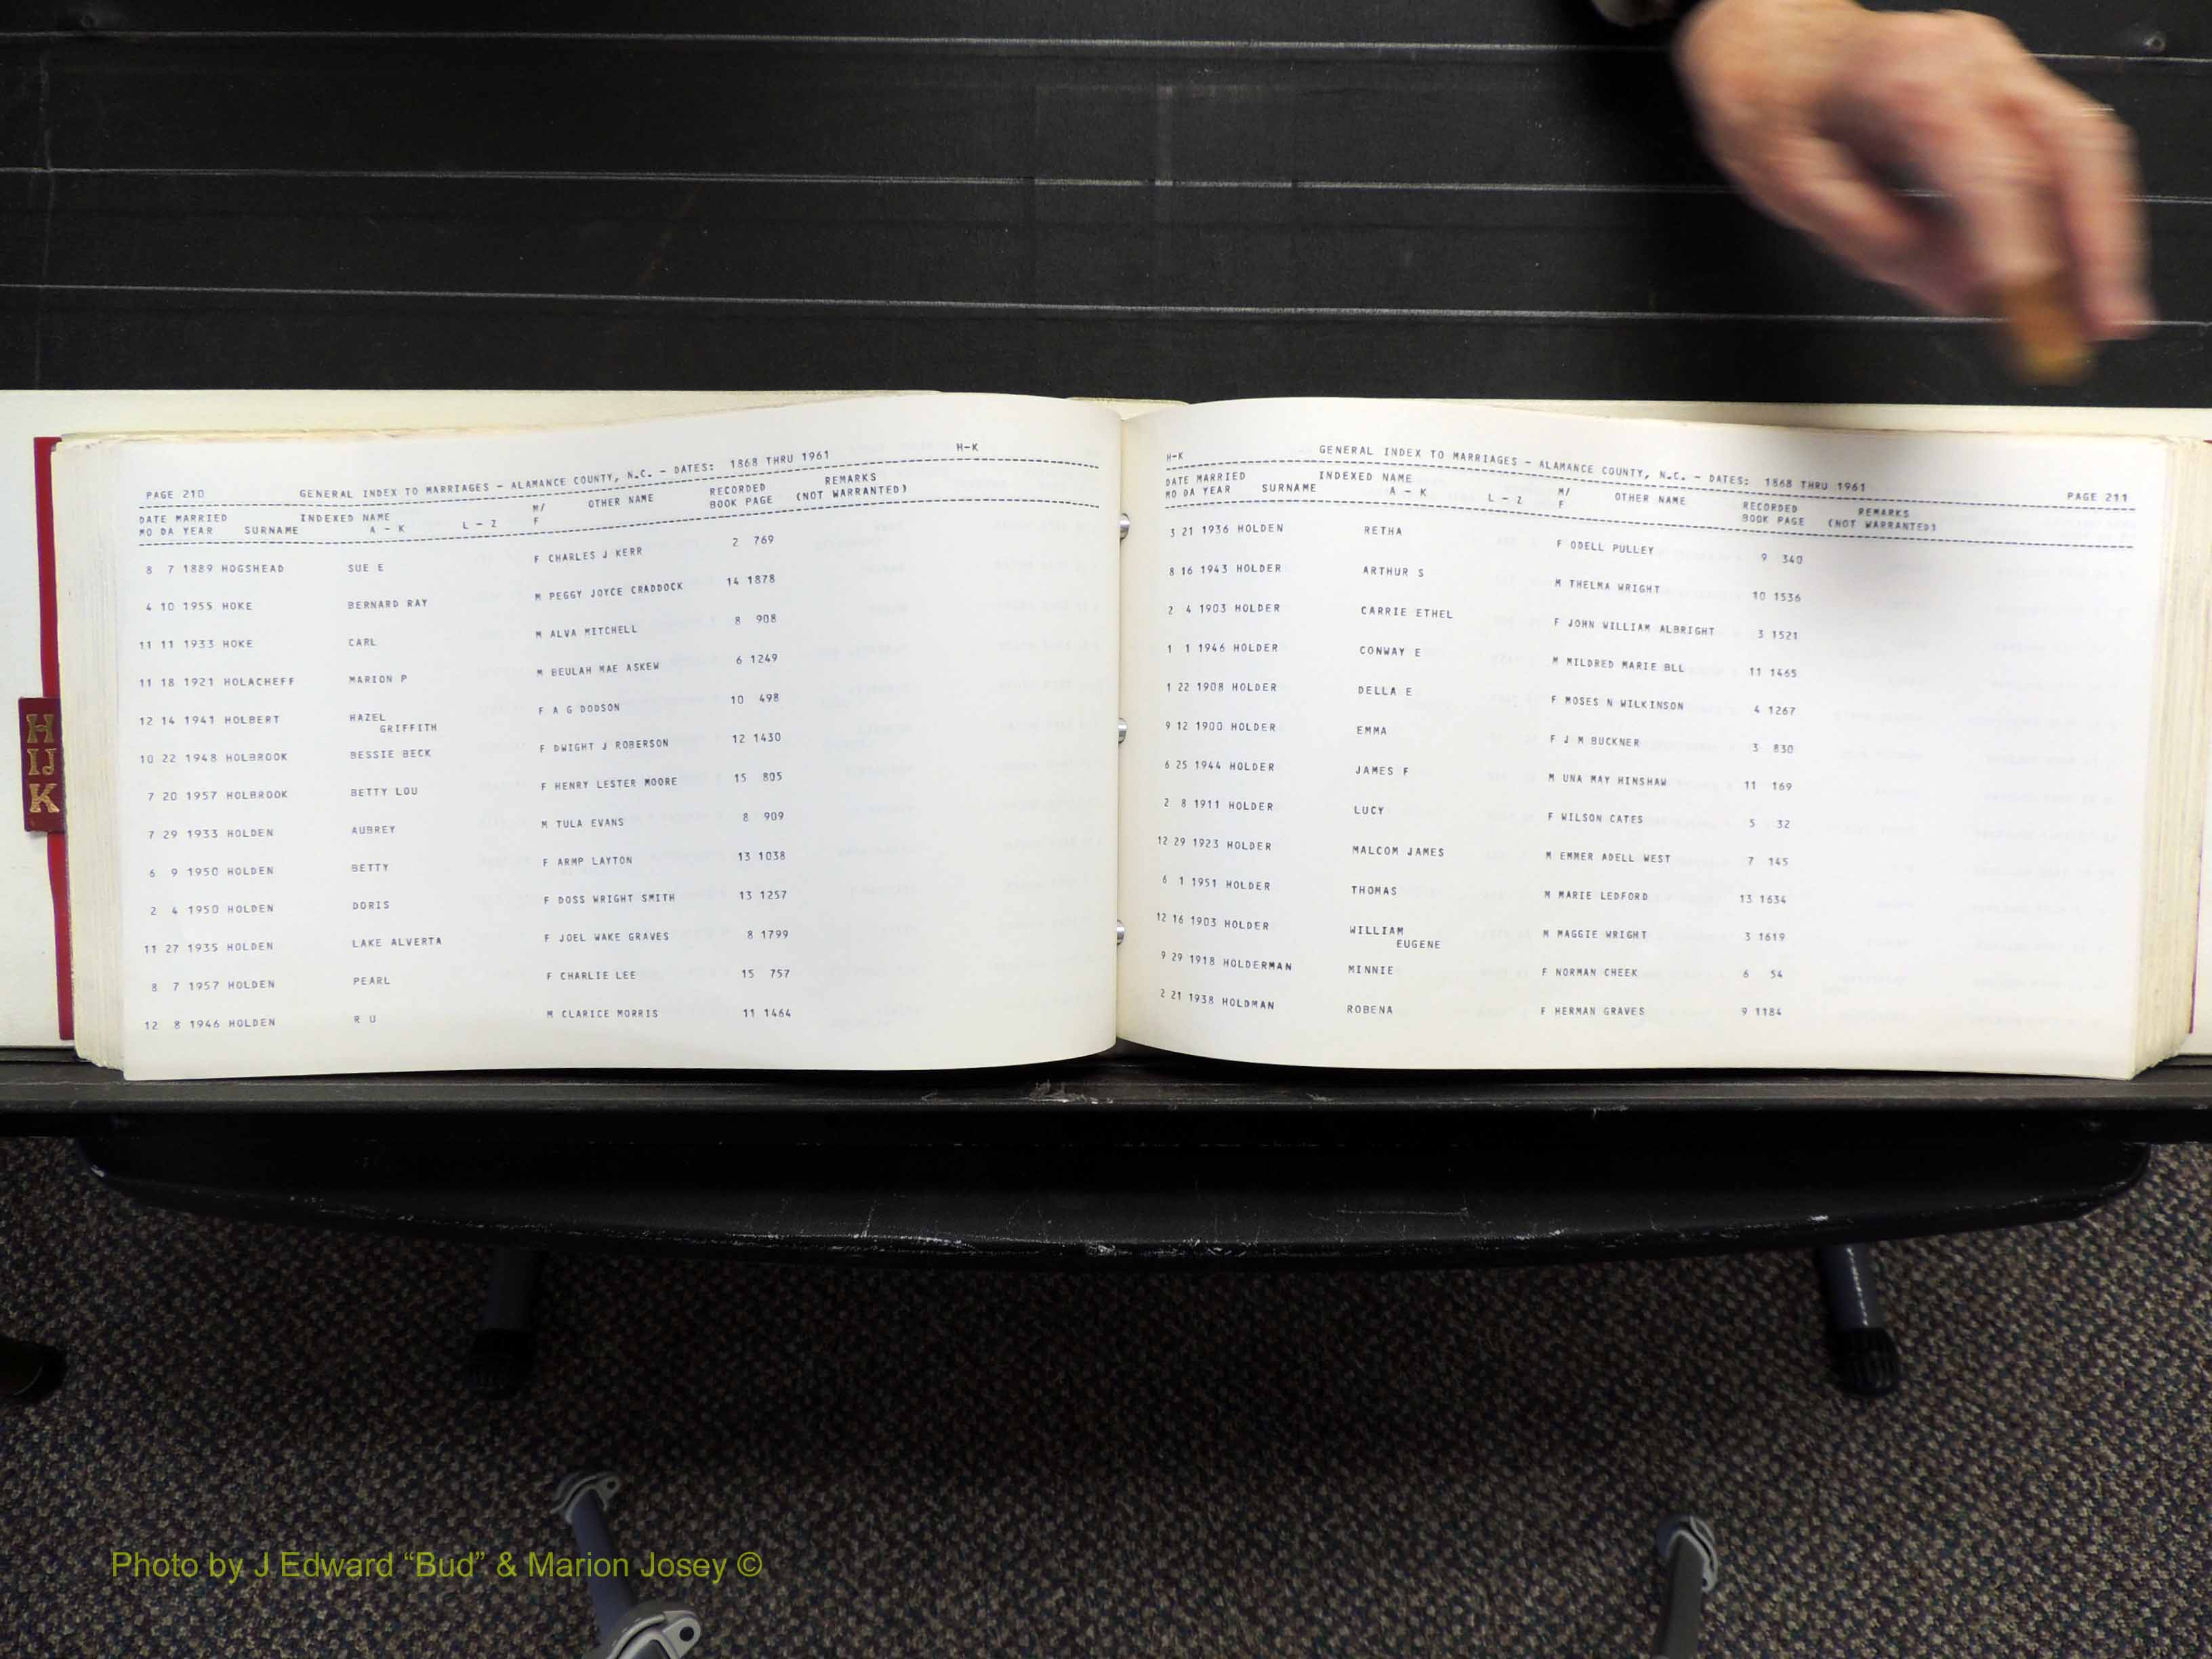 PAGE 210 GENERAL INDEX TO MARRIAGES - ALAMANCE COUNTY, N.C. - DATES: 1868 THRU 1961 H-K
DATE MARRIED INDEXED NAME M/ OTHER NAME RECORDED REMARKS
MO DA YEAR SURNAME A - K L - Z F BOOK PAGE (NOT WARRANTED)
8 7 1889 HOGSHEAD SUE E F CHARLES J KERR 2 769
4 10 1955 HOKE BERNARD RAY M PEGGY JOYCE CRADDOCK 14 1878
11 11 1933 HOKE CARL M ALVA MITCHELL 8 908
11 18 1921 HOLACHEFF MARION P M BEULAH MAE ASKEW 6 1249
12 14 1941 HOLBERT HAZEL F A G DODSON 10 498
GRIFFITH
10 22 1948 HOLBROOK BESSIE BECK F DWIGHT J ROBERSON 12 1430
7 20 1957 HOLBROOK BETTY LOU F HENRY LESTER MOORE 15 805
7 29 1933 HOLDEN AUBREY M TULA EVANS 8 909
6 9 1950 HOLDEN BETTY F ARMP LAYTON 13 1038
2 4 1950 HOLDEN DORIS F DOSS WRIGHT SMITH 13 1257
11 27 1935 HOLDEN LAKE ALVERTA F JOEL WAKE GRAVES 8 1799
8 7 1957 HOLDEN PEARL F CHARLIE LEE 15 757
12 8 1946 HOLDEN R U M CLARICE MORRIS 11 1464
H-K GENERAL INDEX TO MARRIAGES - ALAMANCE COUNTY, N.C. - DATES: 1868 THRU 1961 PAGE 211
DATE MARRIED INDEXED NAME M/ OTHER NAME RECORDED REMARKS
MO DA YEAR SURNAME A - K L - Z F BOOK PAGE (NOT WARRANTED)
3 21 1936 HOLDEN RETHA F ODELL PULLEY 9 340
8 16 1943 HOLDER ARTHUR S M THELMA WRIGHT 10 1536
2 4 1903 HOLDER CARRIE ETHEL F JOHN WILLIAM ALBRIGHT 3 1521
1 1 1946 HOLDER CONWAY E M MILDRED MARIE BLL 11 1465
1 22 1908 HOLDER DELLA E F MOSES N WILKINSON 4 1267
9 12 1900 HOLDER EMMA F J M BUCKNER 3 830
6 25 1944 HOLDER JAMES F M UNA MAY HINSHAW 11 169
2 8 1911 HOLDER LUCY F WILSON CATES 5 32
12 29 1923 HOLDER MALCOM JAMES M EMMER ADELL WEST 7 145
6 1 1951 HOLDER THOMAS M MARIE LEDFORD 13 1634
12 16 1903 HOLDER WILLIAM M MAGGIE WRIGHT 3 1619
EUGENE
9 29 1918 HOLDERMAN MINNIE F NORMAN CHEEK 6 54
2 21 1938 HOLDMAN ROBENA F HERMAN GRAVES 9 1184
H
IJ
K
Photo by J Edward “Bud” & Marion Josey ©